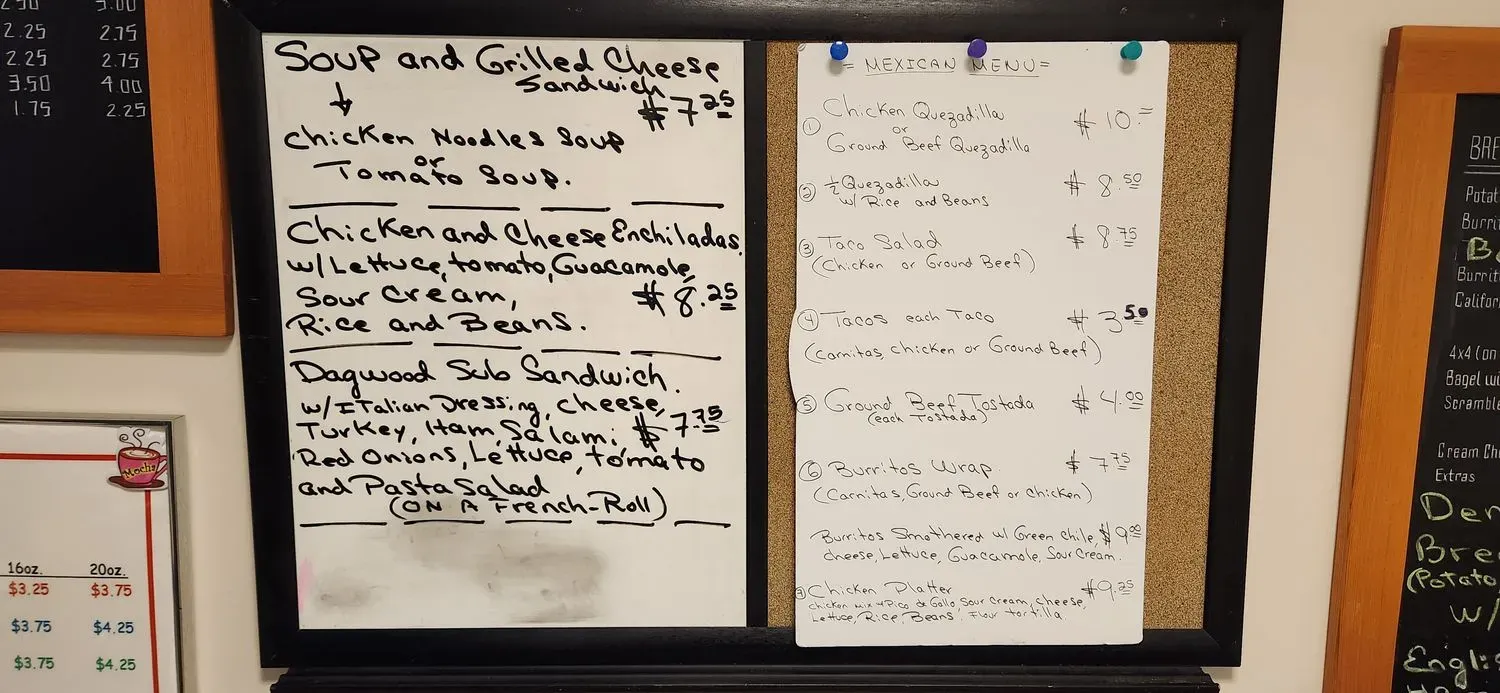 3.00
2.25 2.75
2.25 2.75
3.50 4.00
1.75 2.25
Mocha
16oz. 20oz.
$3.25 $3.75
$3.75 $4.25
$3.75 $4.25
Soup and Grilled Cheese
Sandwich
$7.25
Chicken Noodles Soup
or
Tomato Soup.
Chicken and Cheese Enchiladas
w/Lettuce, tomato, Guacamole,
Sour Cream, $8.25
Rice and Beans.
Dagwood Sub Sandwich.
w/Italian Dressing, Cheese,
Turkey, Ham, Salami, $7.75
Red Onions, Lettuce, tomato
and Pasta Salad
(ON A French-Roll)
= MEXICAN MENU =
① Chicken Quezadilla $10.=
or
Ground Beef Quezadilla
② ½ Quezadilla $8.50
w/ Rice and Beans
③ Taco Salad $8.75
(Chicken or Ground Beef)
④ Tacos each Taco $3.50
(Carnitas, chicken or Ground Beef)
⑤ Ground Beef Tostada $4.00
(each Tostada)
⑥ Burritos Wrap. $7.75
(Carnitas, Ground Beef or chicken)
Burritos Smothered w/ Green Chile, $9.00
cheese, Lettuce, Guacamole, Sour Cream.
⑦ Chicken Platter $9.25
chicken mix w/ Pico de Gallo, Sour Cream, Cheese,
Lettuce, Rice, Beans, Flour tortilla.
BRE
Potat
Burrit
B
Burrit
Califor
4x4 (on
Bagel wi
Scramble
Cream Ch
Extras
Den
Bre
(Potato
w/
Engli